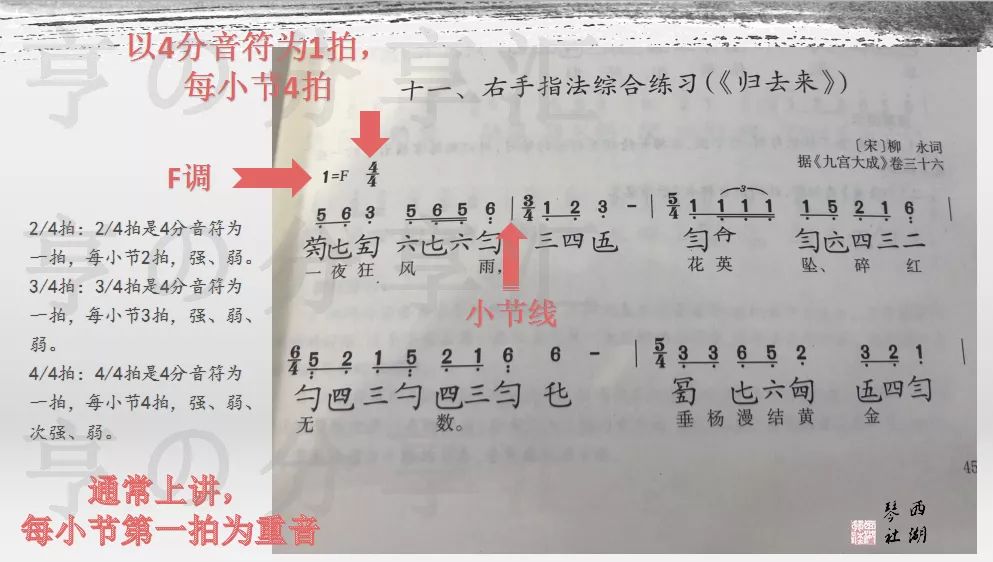 以4分音符为1拍，
每小节4拍
F调
十一、右手指法综合练习(《归去来》)
〔宋〕柳 永词
据《九宫大成》卷三十六
1=F 4/4
5 6 3 5 6 5 6 | 3/4 1 2 3 - | 5/4 1 1 1 1 1 5 2 1 6 |
一 夜 狂 风 雨， 花 英 坠、 碎 红
小节线
6/4 5 2 1 5 2 1 6 6 - | 5/4 3 3 6 5 2 3 2 1 |
无 数。 垂 杨 漫 结 黄 金
45
2/4拍：2/4拍是4分音符为
一拍，每小节2拍，强、弱。
3/4拍：3/4拍是4分音符为
一拍，每小节3拍，强、弱、
弱。
4/4拍：4/4拍是4分音符为
一拍，每小节4拍，强、弱、
次强、弱。
通常上讲，
每小节第一拍为重音
西湖
琴社
亨の分享汇
亨の分享汇
亨の分享